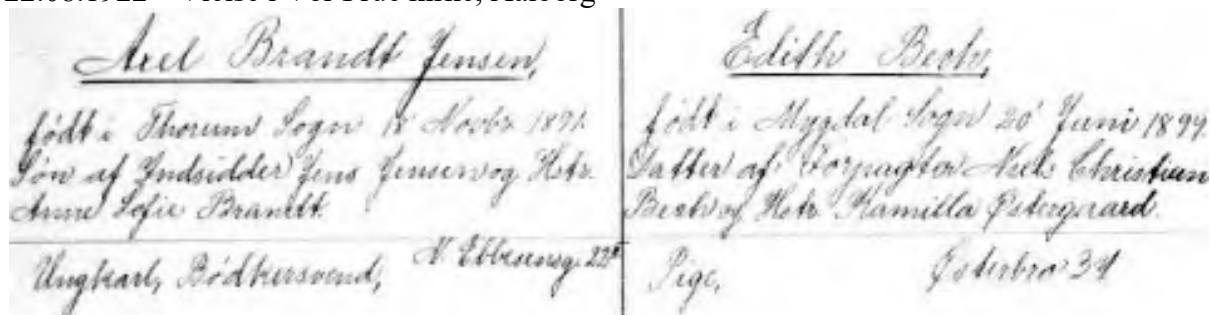 22.08.1922 – Vielse i Vor Frue kirke, Aalborg
Axel Brandt Jensen,
født i Thorum Sogn 18 Novbr. 1891.
Søn af Indsidder Jens Jensen og Hstr.
Anne Sofie Brandt.
Ungkarl, Bødkersvend, N. Ebbesensg. 22
Edith Bech,
født i Mygdal Sogn 20' Juni 1899.
Datter af Forpagter Niels Christian
Bech og Hstr. Kamilla Østergaard.
Pige, Østerbro 34